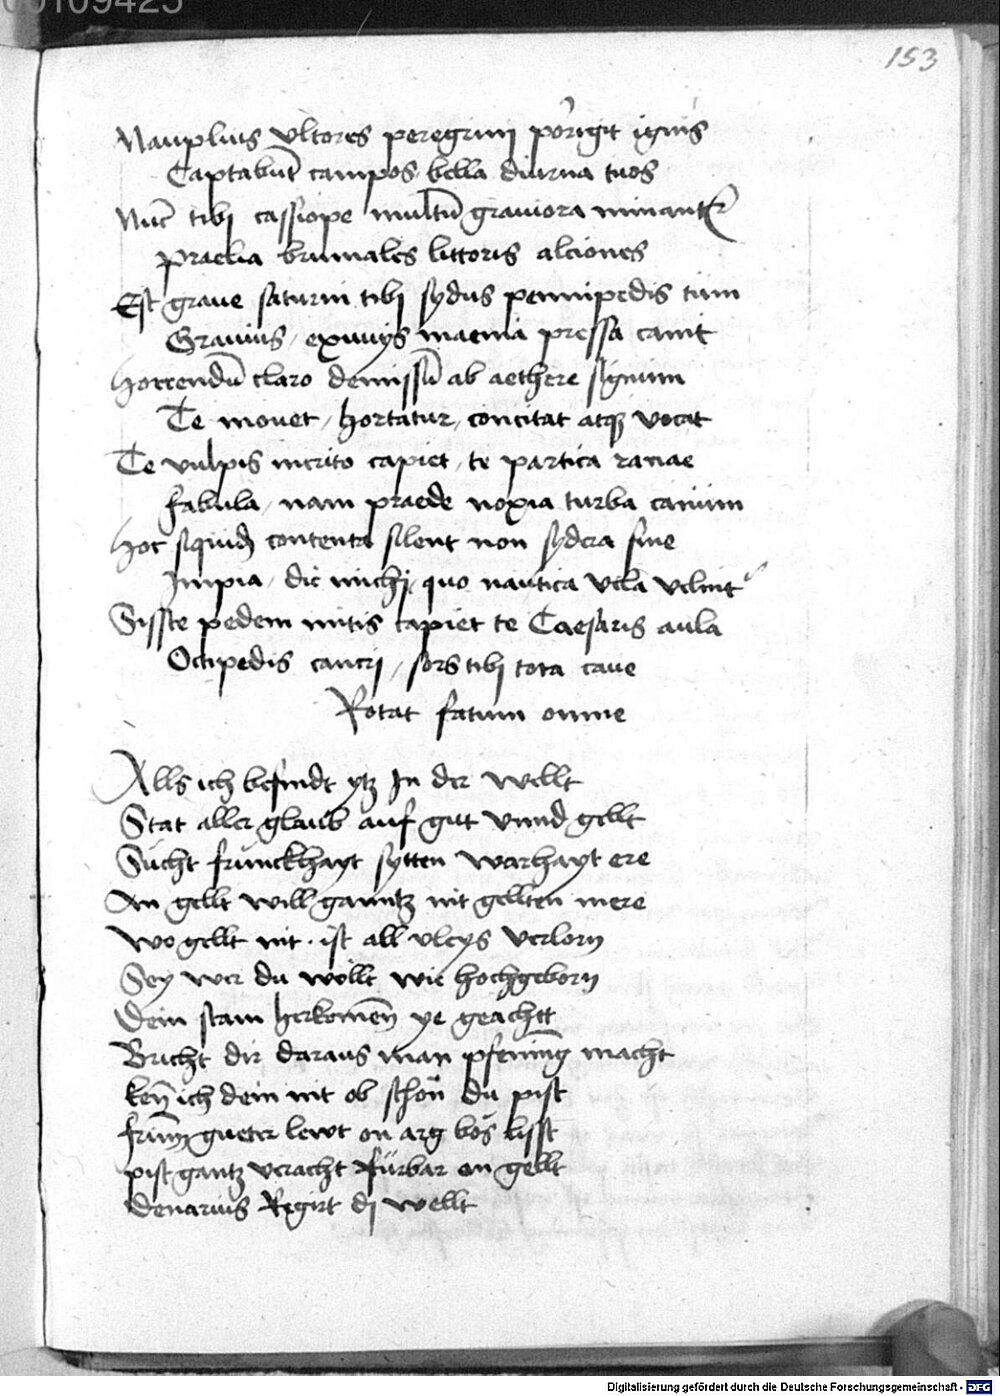 00109425
153
Nauplius ultores peregrini porigit ignis
Captabūt campos bella diurna tuos
Nūc tibj cassiope multū grauiora minantr
Praelia brumales littoris alciones
Est graue saturni tibj sydus pennipedis tum
Grauius, exuuijs maenia pressa canit
Horrendū claro demissū ab aethere signum
Te mouet, hortatur, concitat atq; vocat
Te vulpis merito capiet, te partica
fabula, nam praede noxia turba canum
Hoc siquid contenta silent non sydera sine
Impia, dic michj, quo nautica vela velint
Sisste pedem mitis capiet te Caesaris aula
Octipedis cancrj, sors tibj tota caue
Rotat fatum omne
Alls ich befindt ytz In der wellt
Stat aller glaub auf gut vnnd gellt
Sücht frumckhayt sytten warhayt ere
An gellt will ganntz nit gellten mere
wo gellt nit ist all vleys verlorn
Sey wer du wöllt wie hochgeborn
Dein stam herkomēn ye geachtt
Bricht dir daraus man pfening macht
keñ ich dein nit ob schön du pist
frūm gueter lewt on arg bös lisst
pist gantz veracht fürbar on gellt
Denarius Regirt dj wellt
Digitalisierung gefördert durch die Deutsche Forschungsgemeinschaft - DFG